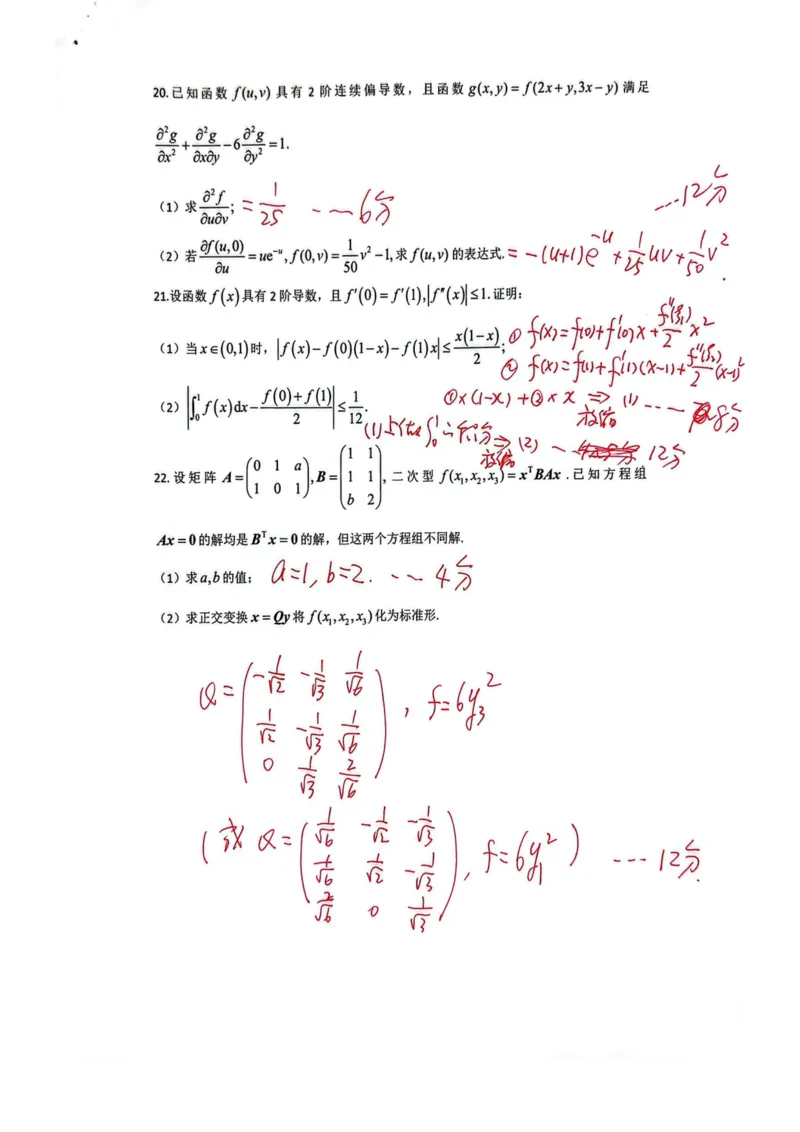 20.已知函数 f(u,v) 具有 2 阶连续偏导数，且函数 g(x,y)=f(2x+y,3x−y) 满足
∂²g/∂x² + ∂²g/∂x∂y − 6 ∂²g/∂y² = 1.
（1）求 ∂²f/∂u∂v; = 1/25 ……6分 ……12分
（2）若 ∂f(u,0)/∂u = ue⁻ᵘ, f(0,v) = 1/50 v² −1, 求 f(u,v) 的表达式. = −(u+1)e^(−u) + 1/25 uv + 1/50 v².
21.设函数 f(x) 具有 2 阶导数，且 f′(0)=f′(1),|f″(x)|≤1.证明：
（1）当 x∈(0,1)时，|f(x)−f(0)(1−x)−f(1)x| ≤ x(1−x)/2; ① f(x)=f(0)+f′(0)x+ f″(ξ₁)/2 x²
② f(x)=f(1)+f′(1)(x−1)+ f″(ξ₂)/2 (x−1)²
①×(1−x)+②×x ⇒放缩 (1) ……8分
（2）|∫₀¹ f(x)dx − (f(0)+f(1))/2| ≤ 1/12.
(1)上做∫₀¹ 积分 ⇒放缩 (2) …… 12分
22.设矩阵 A=(0 1 a; 1 0 1), B=(1 1; 1 1; b 2), 二次型 f(x₁,x₂,x₃)=xᵀBAx .已知方程组
Ax=0 的解均是 Bᵀx=0 的解，但这两个方程组不同解.
（1）求 a,b 的值； a=1, b=2. ……4分
（2）求正交变换 x=Qy 将 f(x₁,x₂,x₃) 化为标准形.
Q=(−1/√2 −1/√3 1/√6; 1/√2 −1/√3 1/√6; 0 1/√3 2/√6), f=6y₃²
(或 Q=(1/√6 −1/√2 −1/√3; 1/√6 1/√2 −1/√3; 2/√6 0 1/√3), f=6y₁²) ……12分.